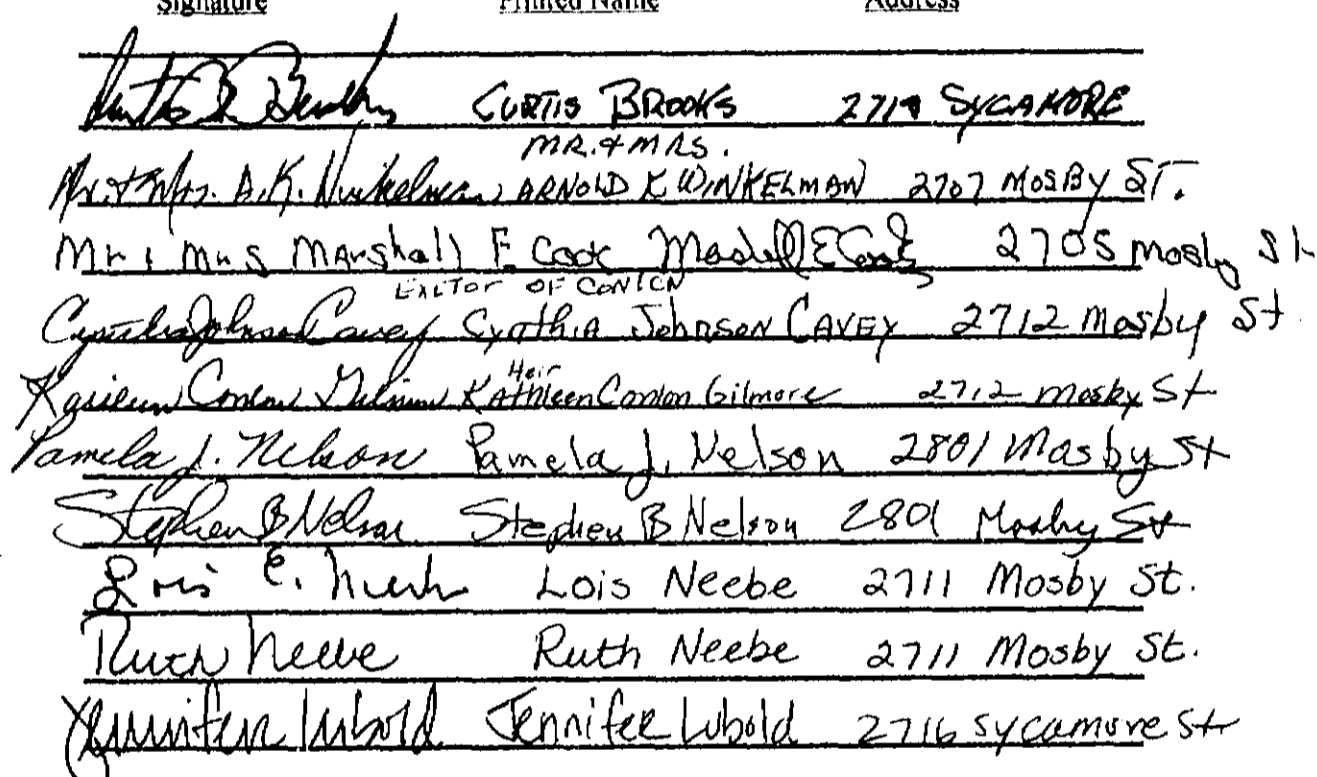 Signature Printed Name Address
Curtis BROOKS 2719 SYCAMORE
MR. & MRS.
Mr. & Mrs. A.K. Winkelman ARNOLD K WINKELMAN 2707 MOSBY ST.
Mr & Mrs Marshall E. Cook Marshall E Cook 2705 Mosby St
OF
Cynthia Johnson Cavey Cynthia Johnson CAVEY 2712 Mosby St.
Heir
Kathleen Conlon Gilmore Kathleen Conlon Gilmore 2712 Mosby St
Pamela J. Nelson Pamela J. Nelson 2801 Mosby St
Stephen B Nelson Stephen B Nelson 2801 Mosby St
Lois E. Neebe Lois Neebe 2711 Mosby St.
Ruth Neebe Ruth Neebe 2711 Mosby St.
Jennifer Lubold Jennifer Lubold 2716 Sycamore St